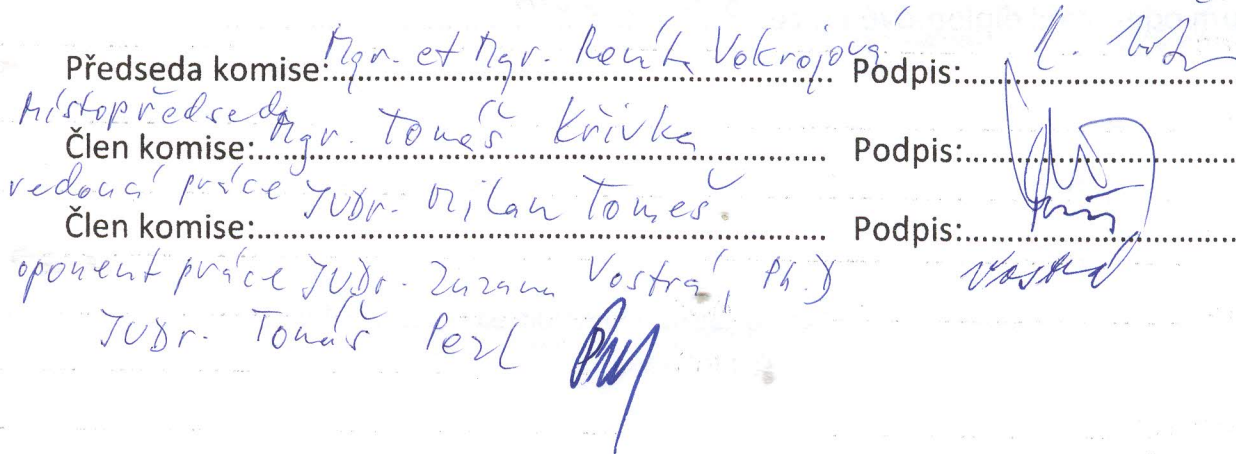 Předseda komise: Mgr. et Mgr. Renáta Vokrojová Podpis:
Místopředseda
Člen komise: Mgr. Tomáš Křivka Podpis:
vedoucí práce JUDr. Milan Tomeš
Člen komise: Podpis:
oponent práce JUDr. Zuzana Vostrá, Ph.D Vostrá
JUDr. Tomáš Pezl